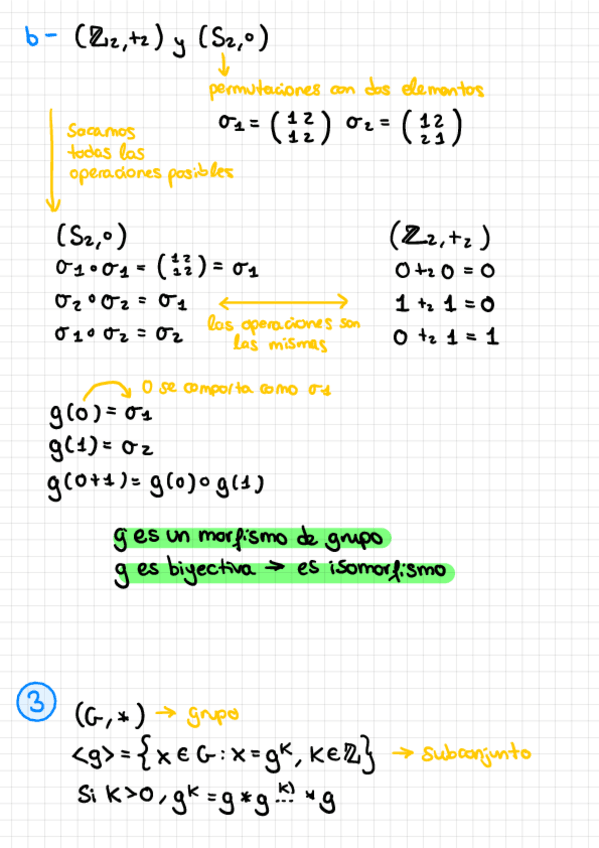 b- (ℤ₂,+₂) y (S₂,∘)
permutaciones con dos elementos
σ₁ = (1 2 / 1 2) σ₂ = (1 2 / 2 1)
Sacamos
todas las
operaciones posibles
(S₂,∘)
σ₁∘σ₁ = (1 2 / 1 2) = σ₁
σ₂∘σ₂ = σ₁
σ₁∘σ₂ = σ₂
las operaciones son
las mismas
(ℤ₂,+₂)
0 +₂ 0 = 0
1 +₂ 1 = 0
0 +₂ 1 = 1
0 se comporta como σ1
g(0) = σ₁
g(1) = σ₂
g(0+1) = g(0)∘g(1)
g es un morfismo de grupo
g es biyectiva → es isomorfismo
3
(G,*) → grupo
<g> = {x ∈ G : x = gᴷ, K∈ℤ} → subconjunto
Si K>0, gᴷ = g * g ...ᴷ⁾ * g